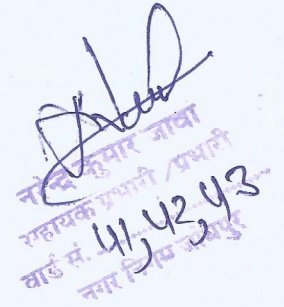 नरेन्द्र कुमार जावा
सहायक प्रभारी / प्रभारी
वार्ड सं. 41, 42, 43
नगर निगम जोधपुर